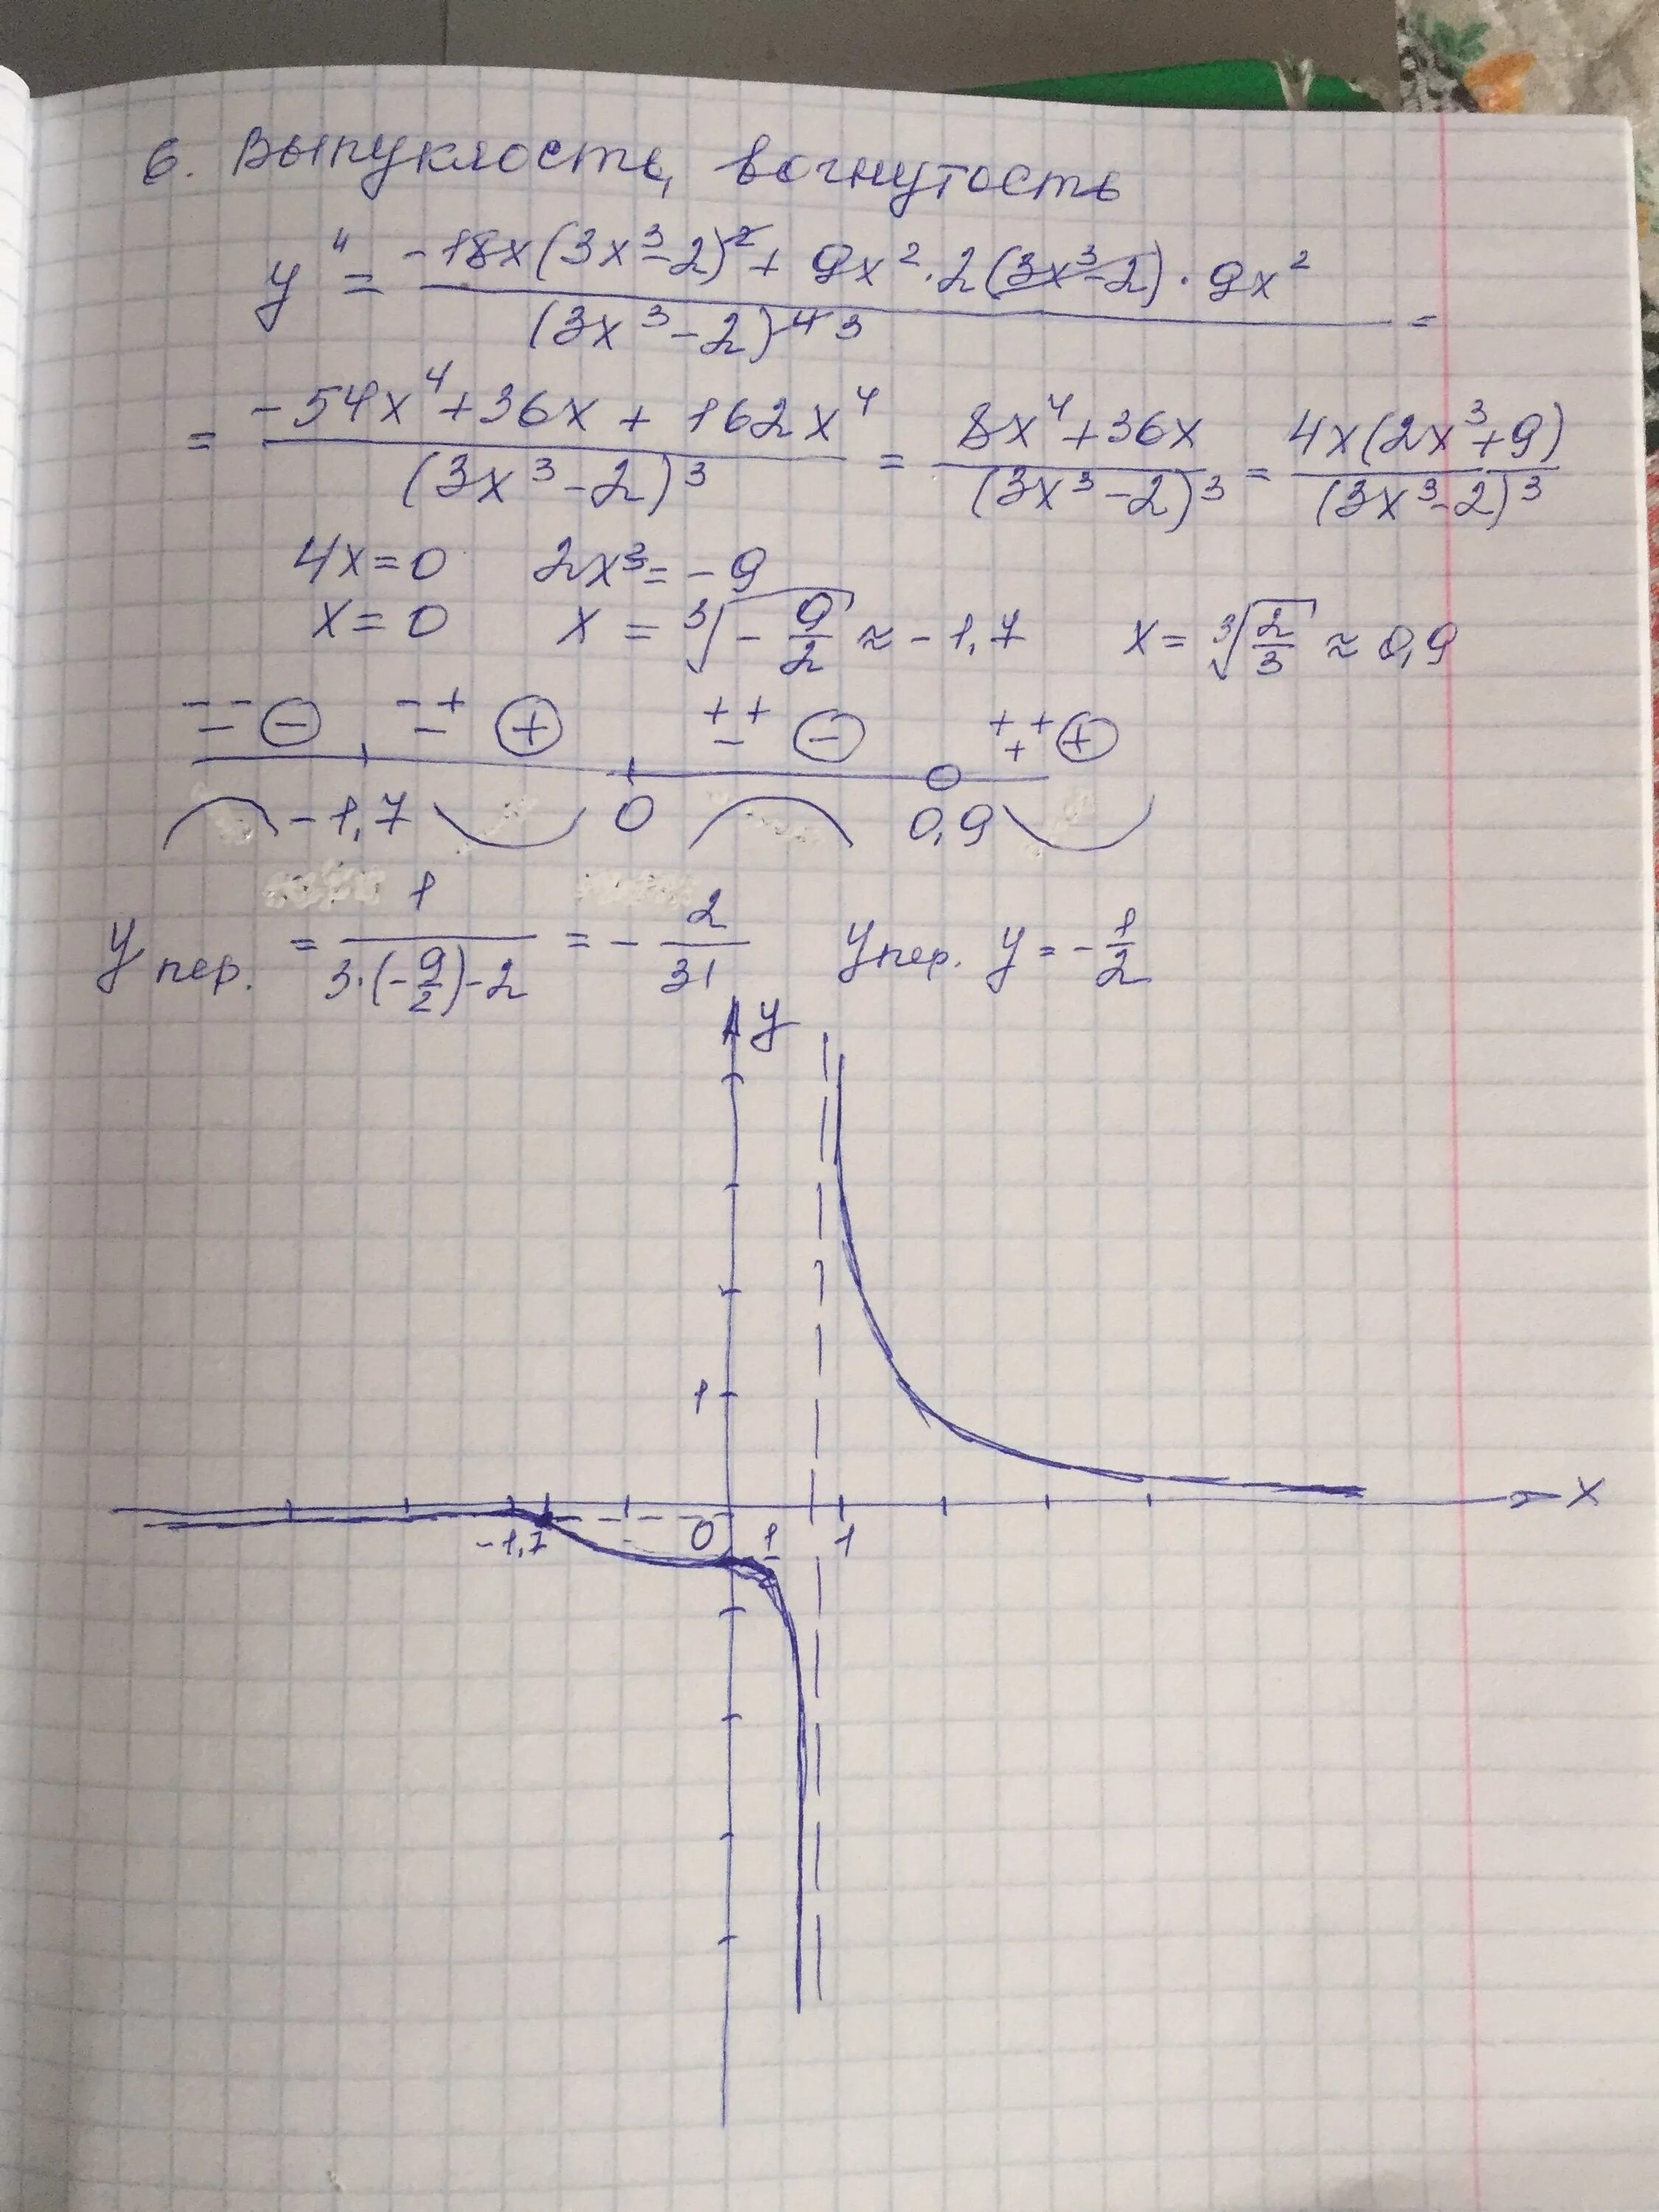 6. Выпуклость, вогнутость
y'' = (-18x(3x³-2)² + 9x²·2(3x³-2)·9x²)/(3x³-2)⁴ ³ =
= (-54x⁴+36x+162x⁴)/(3x³-2)³ = (8x⁴+36x)/(3x³-2)³ = (4x(2x³+9))/(3x³-2)³
4x=0 2x³=-9
x=0 x = ³√(-9/2) ≈ -1,7 x = ³√(2/3) ≈ 0,9
- - - ⊖ - + - ⊕ + + - ⊖ + + + ⊕
-1,7 0 0,9
y пер. = 1/(3·(-9/2)-2) = -2/31 y пер. y = -1/2
y
1
x
-1,7 0 1 1